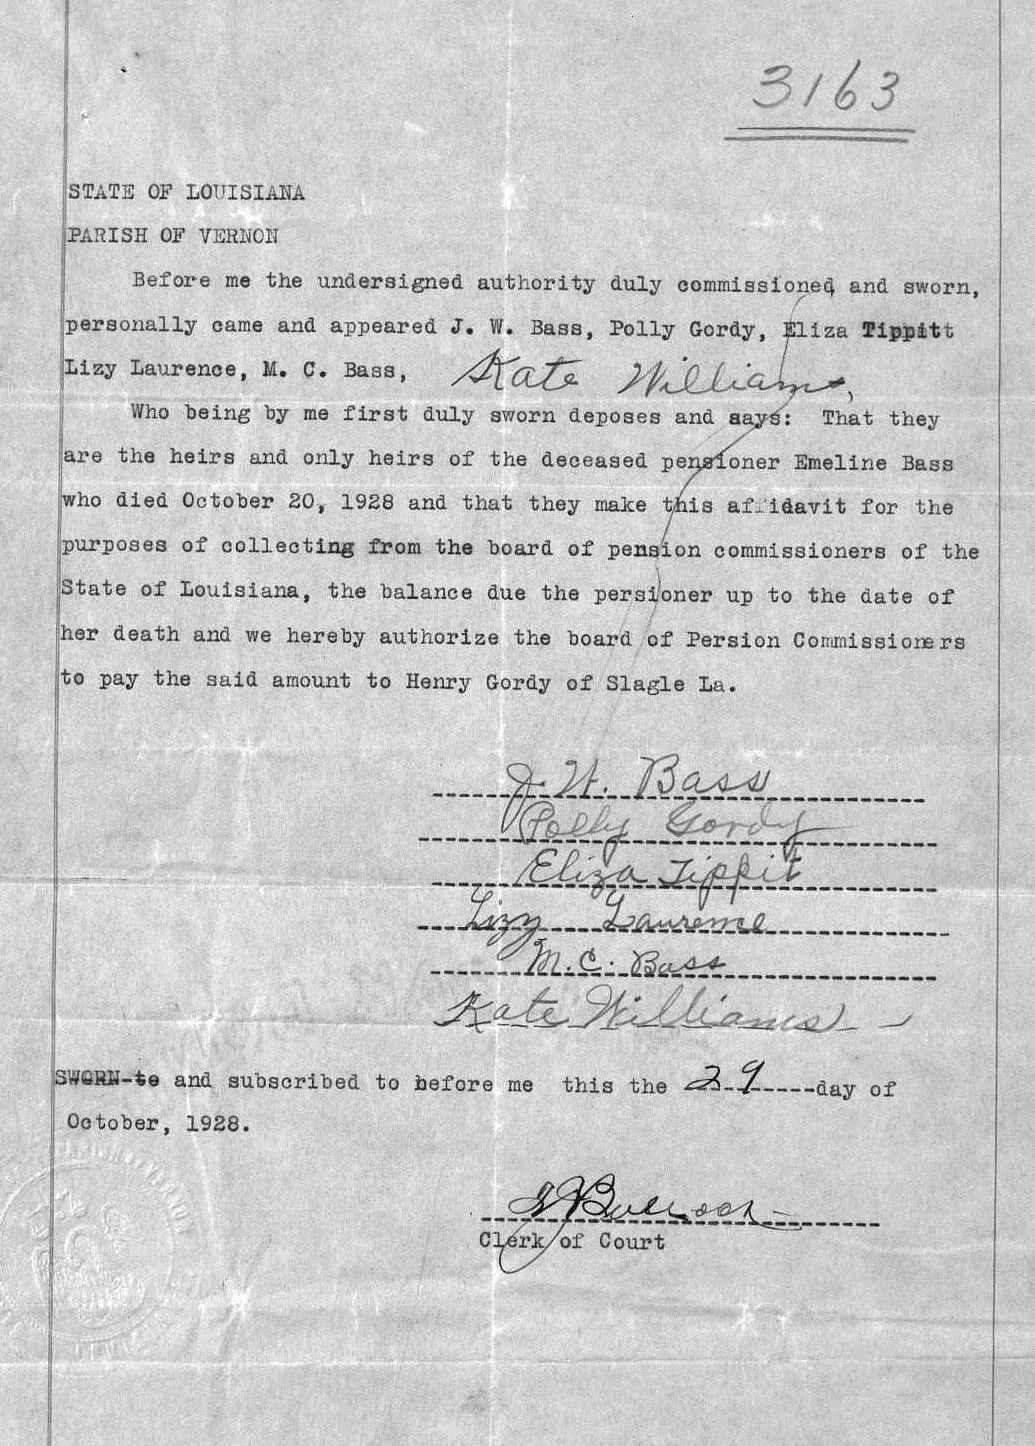 3163
STATE OF LOUISIANA
PARISH OF VERNON
Before me the undersigned authority duly commissioned and sworn,
personally came and appeared J. W. Bass, Polly Gordy, Eliza Tippitt
Lizy Laurence, M. C. Bass, Kate Williams,
Who being by me first duly sworn deposes and says: That they
are the heirs and only heirs of the deceased pensioner Emeline Bass
who died October 20, 1928 and that they make this affidavit for the
purposes of collecting from the board of pension commissioners of the
State of Louisiana, the balance due the persioner up to the date of
her death and we hereby authorize the board of Persion Commissioners
to pay the said amount to Henry Gordy of Slagle La.
J. W. Bass
Polly Gordy
Eliza Tippit
Lizy Laurence
M. C. Bass
Kate Williams
SWORN to and subscribed to before me this the 29 day of
October, 1928.
Bullock
Clerk of Court